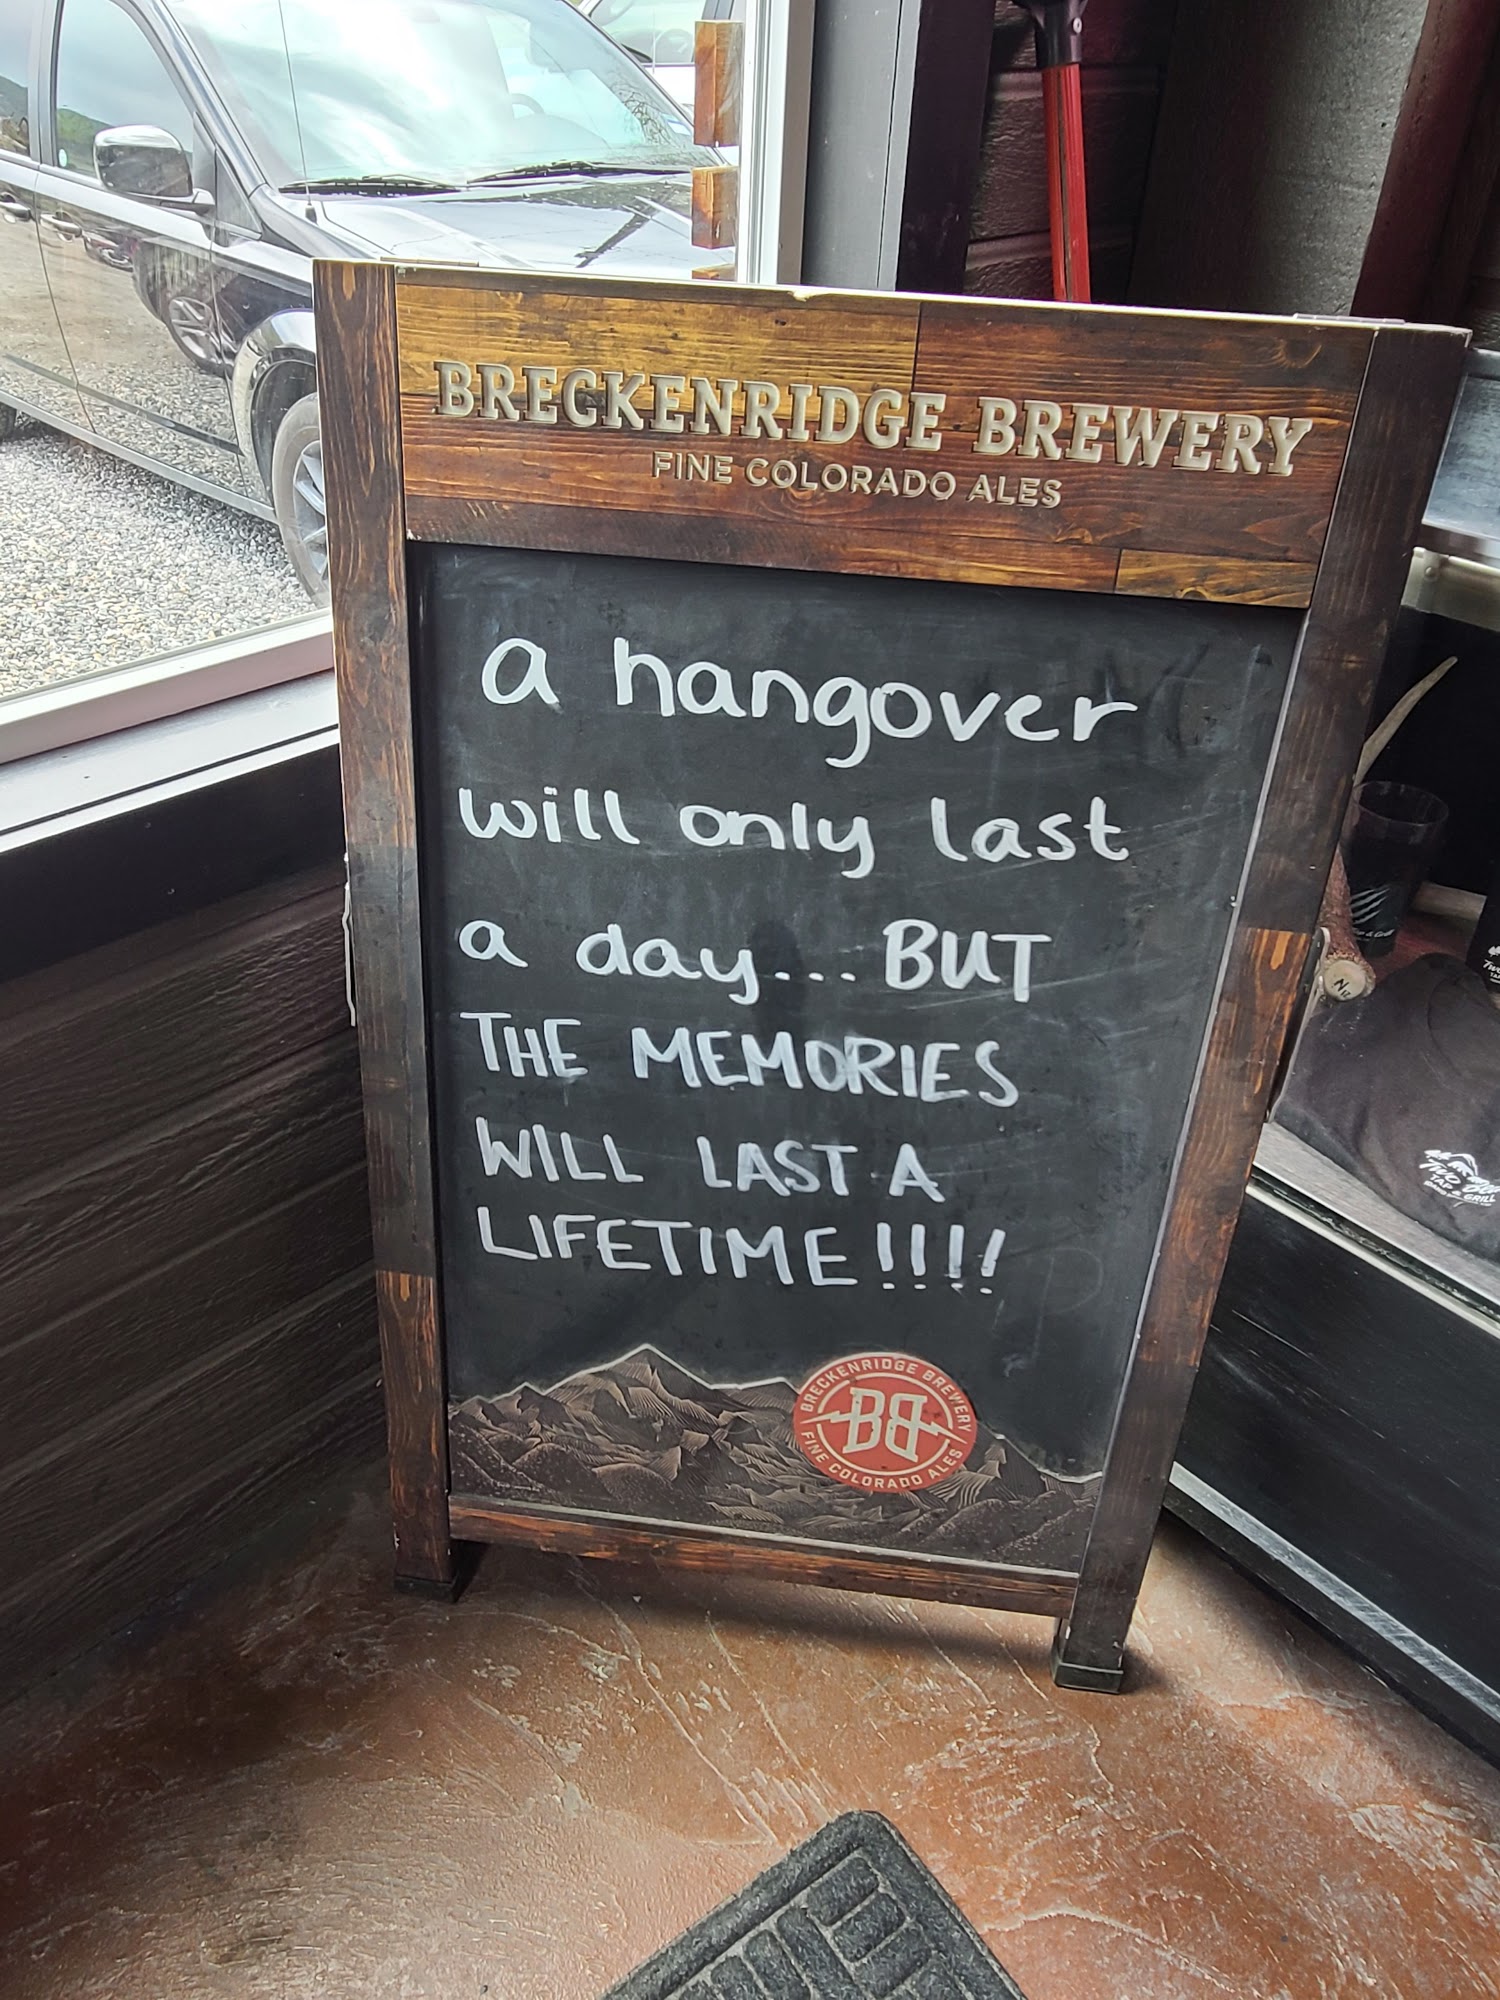 BRECKENRIDGE BREWERY
FINE COLORADO ALES
a hangover
will only last
a day... BUT
THE MEMORIES
WILL LAST A
LIFETIME!!!!
BRECKENRIDGE BREWERY
BB
FINE COLORADO ALES
TWO
TAP & GRILL